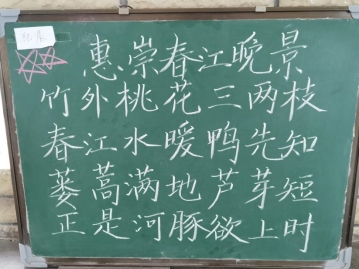 惠崇春江晚景
竹外桃花三两枝
春江水暖鸭先知
蒌蒿满地芦芽短
正是河豚欲上时